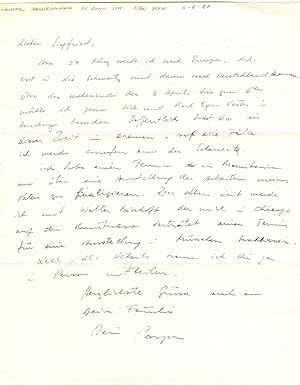 BOND STR. NEW YORK
Lieber Siegfried,
Am 27 März werde ich nach Europa, d.h.
erst in die Schweiz und dann nach Deutschland kommen.
Über das Wochenende des 3 Aprils bis zum
möchte ich gerne Dich und Karl Egon Vester in
Hamburg besuchen. Hoffentlich bist Du in
dieser Zeit in Bremen. Auf alle Fälle
ich werde anrufen aus der Schweiz.
Ich habe einen Termin in Mannheim
um über eine Ausstellung der Arbeiten meines
Vaters zu finalisieren. Zur selben Zeit werde
ich mit Walter Bischoff der mich in Chicago
auf der Kunstmesse vertritt einen Termin
für eine Ausstellung in München
Well, die Details kann ich Dir ja
in Person mitteilen.
Herzlichste Grüsse auch an
Deine Familie
Dein